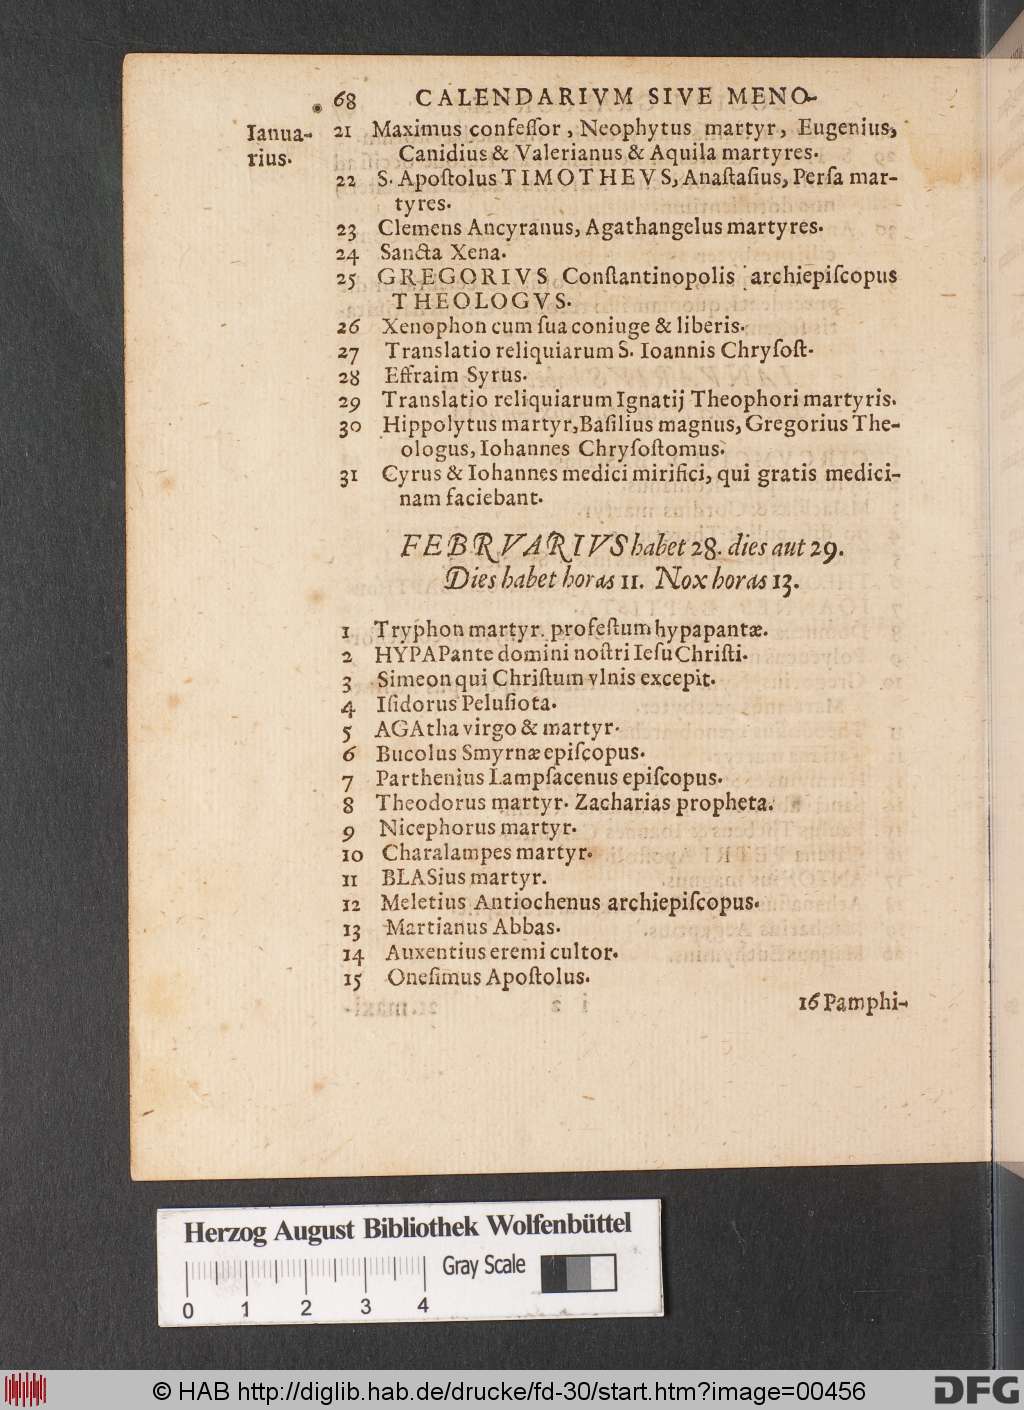 68 CALENDARIVM SIVE MENO-
Ianua-
rius.
21 Maximus confeſſor, Neophytus martyr, Eugenius,
Canidius & Valerianus & Aquila martyres.
22 S. Apoſtolus TIMOTHEVS, Anaſtaſius, Perſa mar-
tyres.
23 Clemens Ancyranus, Agathangelus martyres.
24 Sancta Xena.
25 GREGORIVS Conſtantinopolis archiepiſcopus
THEOLOGVS.
26 Xenophon cum ſua coniuge & liberis.
27 Translatio reliquiarum S. Ioannis Chryſoſt.
28 Effraim Syrus.
29 Translatio reliquiarum Ignatij Theophori martyris.
30 Hippolytus martyr, Baſilius magnus, Gregorius The-
ologus, Iohannes Chryſoſtomus.
31 Cyrus & Iohannes medici mirifici, qui gratis medici-
nam faciebant.
FEBRVARIVS habet 28. dies aut 29.
Dies habet horas 11. Nox horas 13.
1 Tryphon martyr. profeſtum hypapantæ.
2 HYPAPante domini noſtri Ieſu Chriſti.
3 Simeon qui Chriſtum vlnis excepit.
4 Iſidorus Peluſiota.
5 AGAtha virgo & martyr.
6 Bucolus Smyrnæ epiſcopus.
7 Parthenius Lampſacenus epiſcopus.
8 Theodorus martyr. Zacharias propheta.
9 Nicephorus martyr.
10 Charalampes martyr.
11 BLASius martyr.
12 Meletius Antiochenus archiepiſcopus.
13 Martianus Abbas.
14 Auxentius eremi cultor.
15 Oneſimus Apoſtolus.
16 Pamphi-
Herzog August Bibliothek Wolfenbüttel
Gray Scale
0 1 2 3 4
© HAB http://diglib.hab.de/drucke/fd-30/start.htm?image=00456
DFG